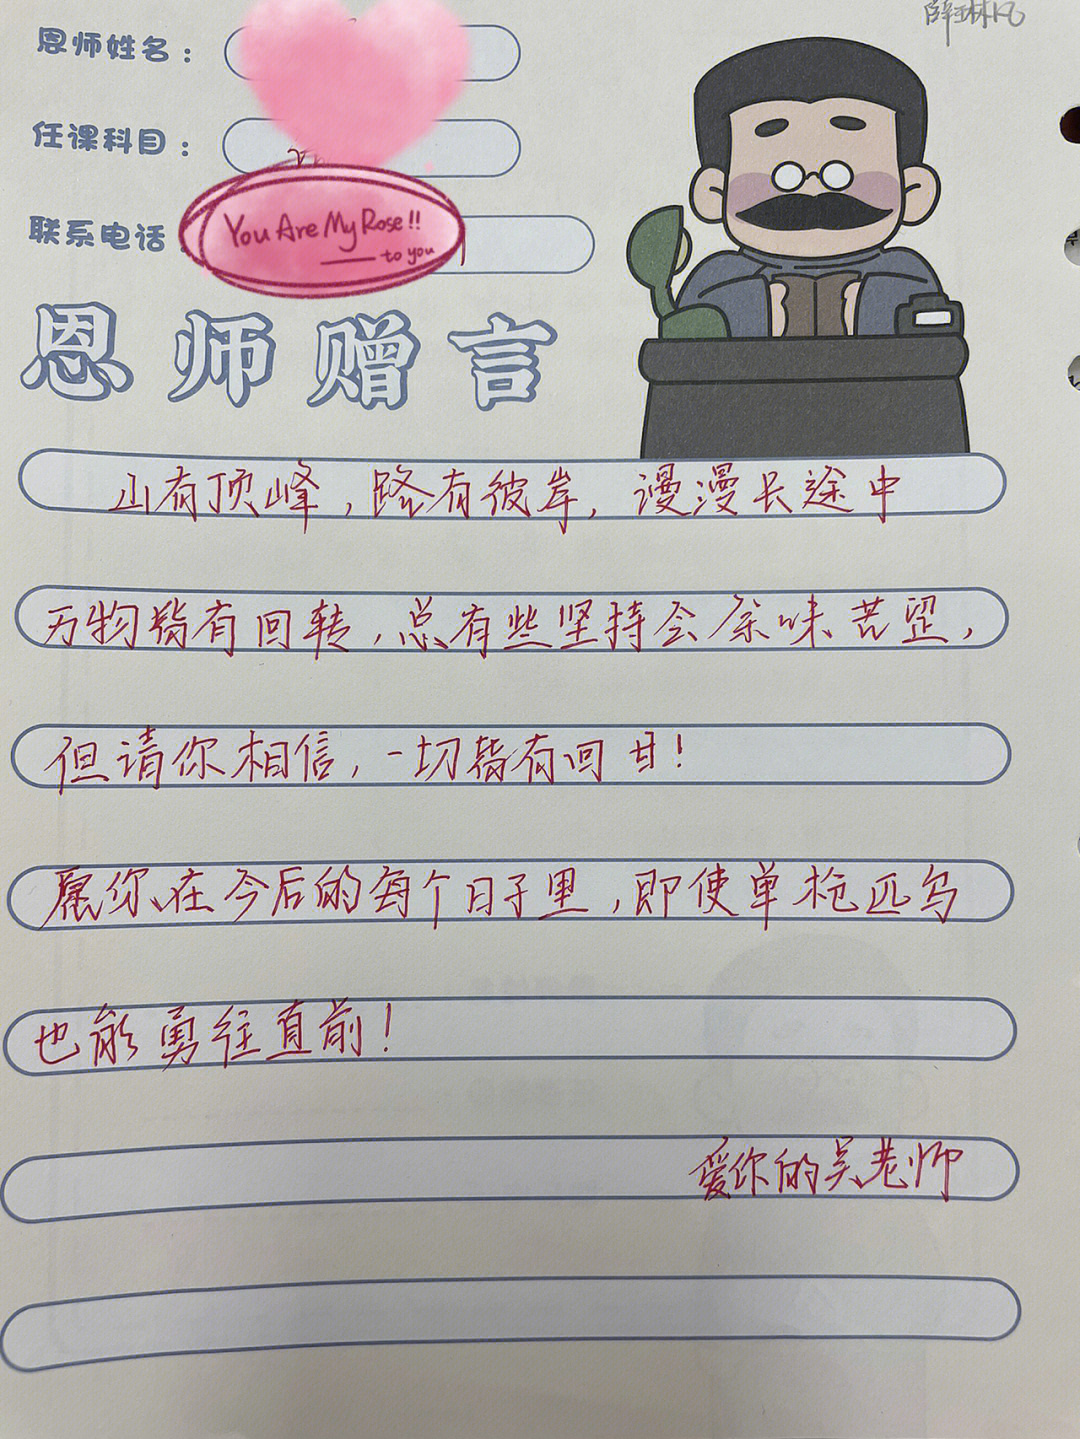 薛琳凡
恩师姓名：
任课科目：
联系电话
You Are My Rose!!
to you
恩师赠言
山有顶峰，路有彼岸，漫漫长途中
万物皆有回转，总有些坚持会余味苦涩，
但请你相信，一切皆有回甘！
愿你在今后的每个日子里，即使单枪匹马
也能勇往直前！
爱你的吴老师